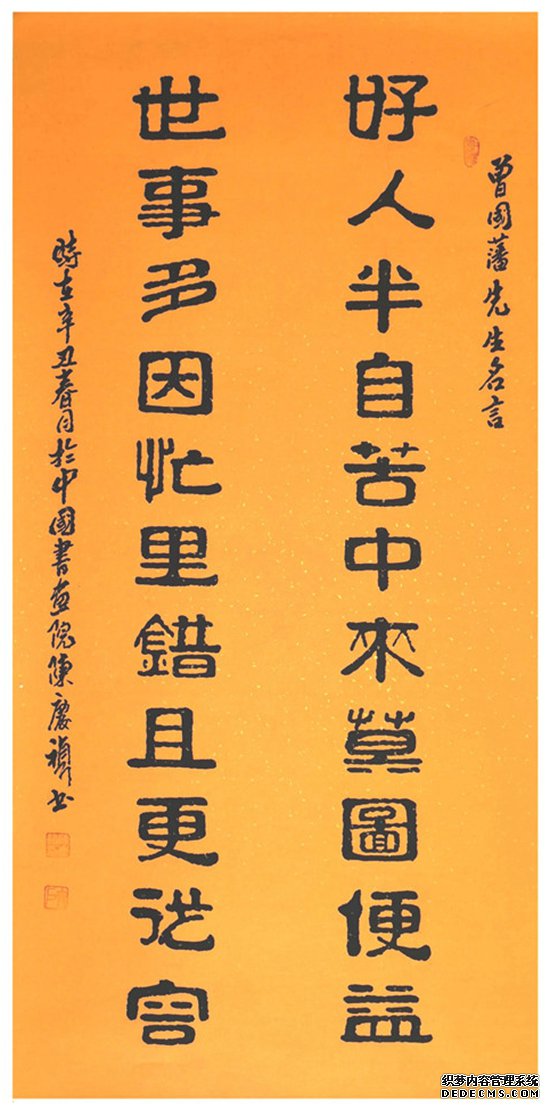 曾国藩先生名言
好人半自苦中來莫圖便益
世事多因忙里錯且更從容
時在辛丑春月於中國書畫院陳慶禎書
织梦内容管理系统
DEDECMS.COM